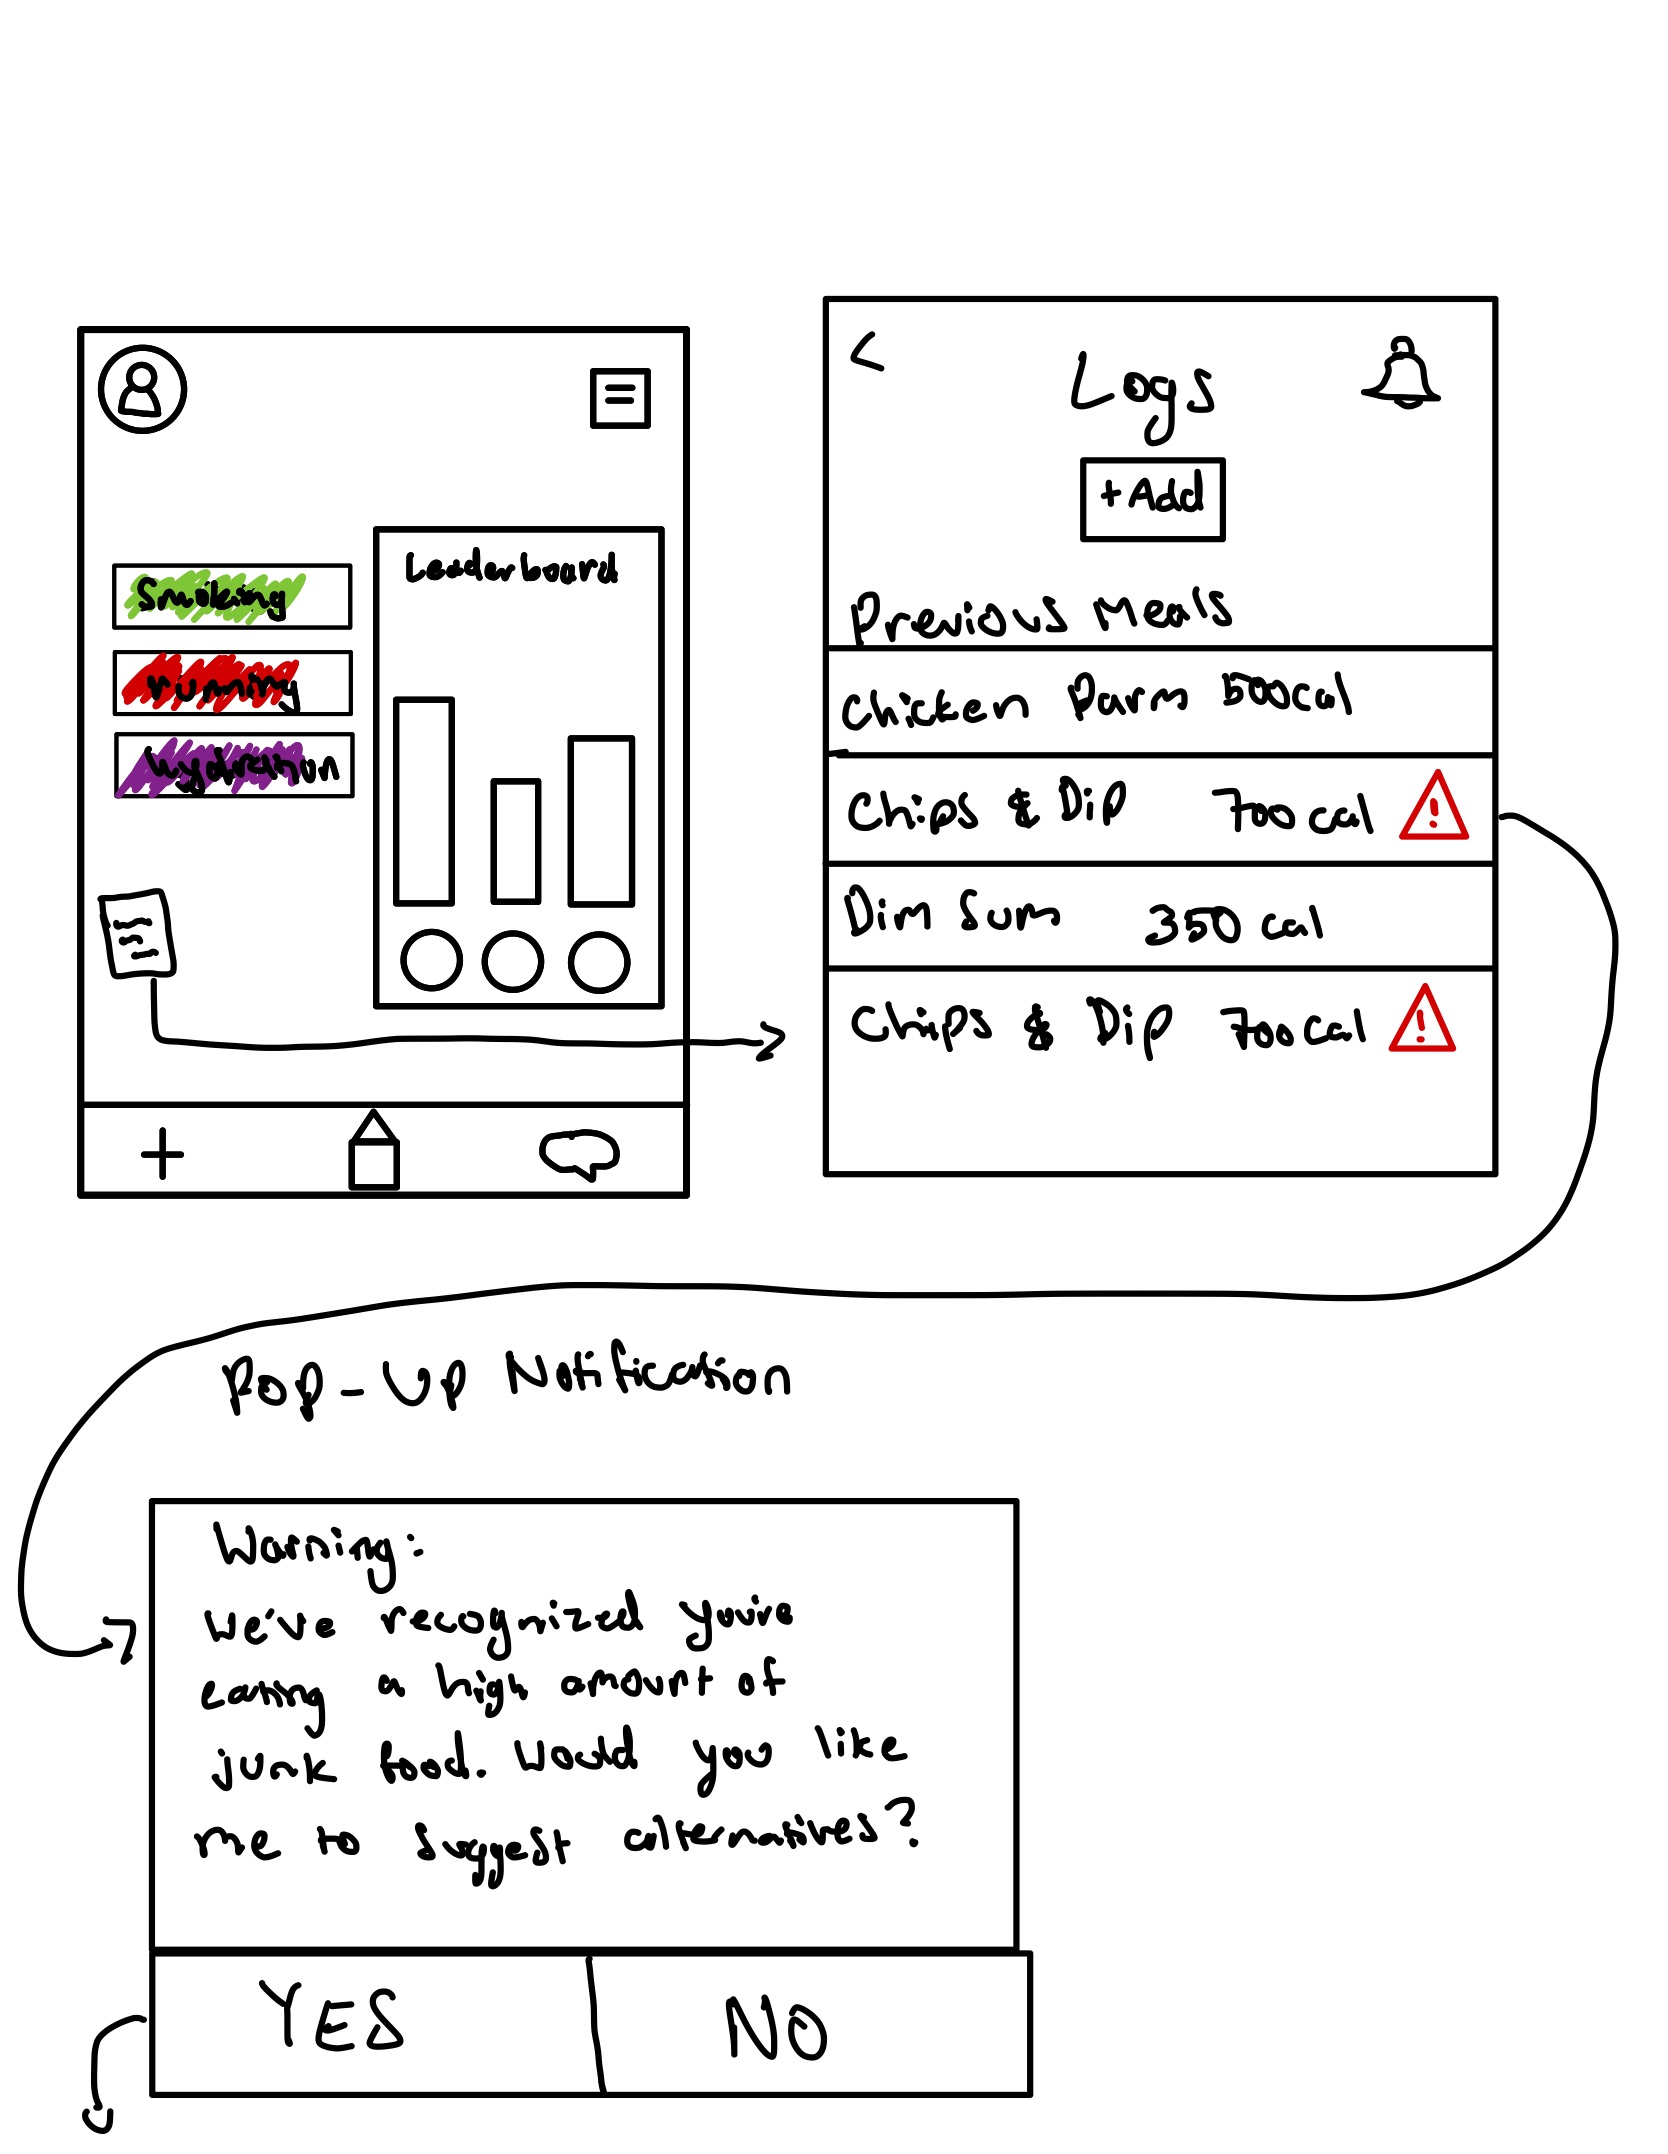 Smoking
running
hydration
Leaderboard
Logs
+Add
Previous Meals
Chicken Parm 500cal
Chips & Dip 700 cal
Dim Sum 350 cal
Chips & Dip 700cal
Pop-Up Notification
Warning:
We've recognized you're
eating a high amount of
junk food. Would you like
me to suggest alternatives?
YES NO